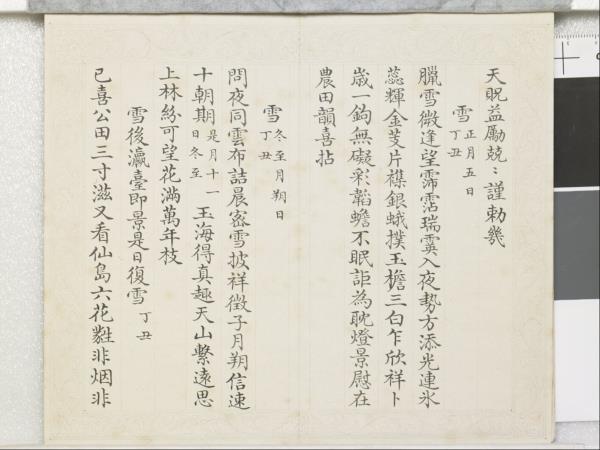 天貺益勵兢〻謹勅幾
雪 正月五日 丁丑
臘雪微逢望霈霑瑞霙入夜勢方添光連氷
蕊輝金芰片襍銀蛾撲玉檐三白乍欣祥卜
歳一鉤無礙彩韜蟾不眠詎為耽燈景慰在
農田韻喜拈
雪 冬至月朔日 丁丑
問夜同雲布詰晨密雪披祥徵子月朔信速
十朝期 是月十一日冬至 玉海得真趣天山繫遠思
上林紛可望花滿萬年枝
雪後瀛臺即景是日復雪 丁丑
已喜公田三寸滋又看仙島六花蕤非烟非